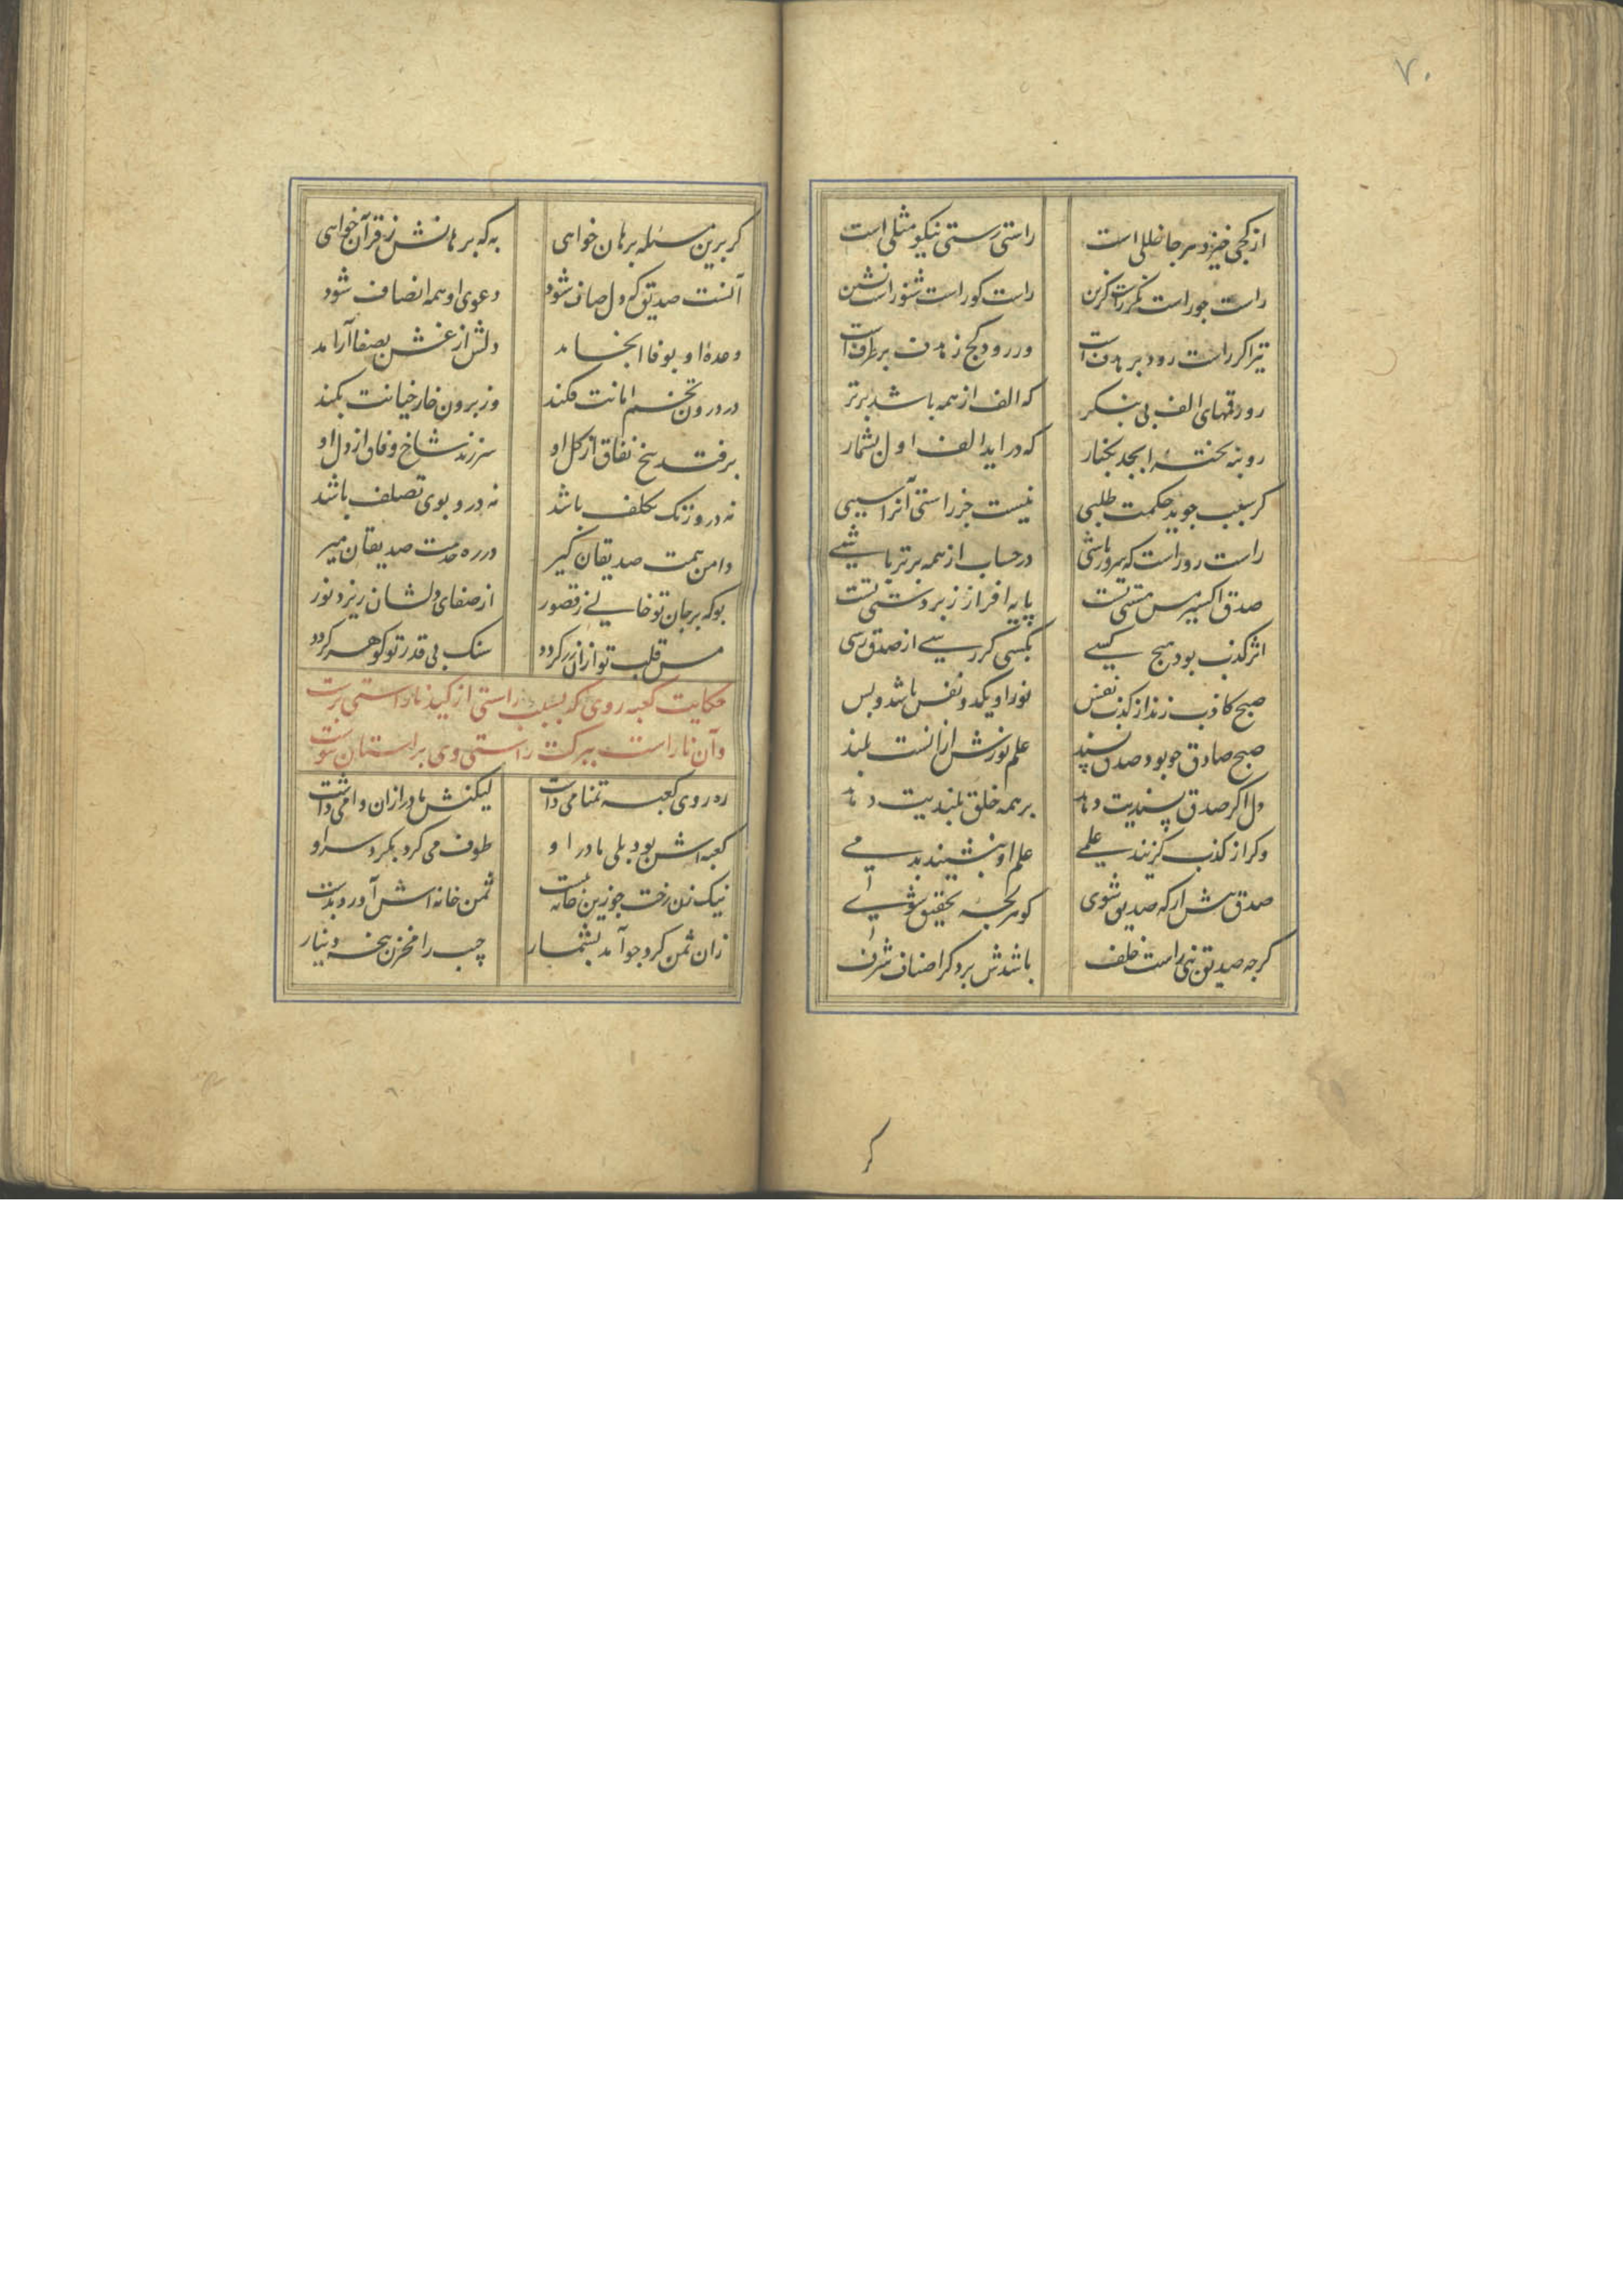 ۷۰
از کجی خیزد هر جا خللی است راستی رستی نیکو مثلی است
راست جو راست نگر راست گزین راست گو راست شنو راست نشین
تیر اکر راست رود بر هدف است ور رود کج ز هدف بر طرف است
رو رقمهای الف بی بنگر که الف از همه باشد برتر
رو بنه تخته ابجد بکنار که در اید الف اول بشمار
کر سبب جوید حکمت طلبی نیست جز راستی آنرا سببی
راست رو راست که سرور باشی در حساب از همه برتر باشی
صدق اکسیر مس هستی تست پایه افراز زبردستی تست
اثر کذب بود هیچ کسی بکسی کر رسی از صدق رسی
صبح کاذب زند از کذب نفس نور او یکدو نفس باشد و بس
صبح صادق چو بود صدق پسند علم نورش از انست بلند
دل اکر صدق پسندیت دهد بر همه خلق بلندیت دهد
وکر از کذب کزیند علمی علم او بنشیند بدمی
صدق پیش ار که صدیق شوی کوهر لجه تحقیق شوی
کرچه صدیق نبی راست خلف باشدش بر دکر اصناف شرف
کر
کر برین مسئله برهان خواهی به که برهانش ز قرآن خواهی
آنست صدیق که دل صاف شود دعوی او همه انصاف شود
وعدهٔ او بوفا انجامد دلش از غش بصفا آرامد
در درون تخم امانت فکند وز برون خار خیانت بکند
برفتد بیخ نفاق از کل او سرزند شاخ وفاق از دل او
نه درو رنک تکلف باشد نه درو بوی تصلف باشد
دامن همت صدیقان کیر در ره خدمت صدیقان میر
بو که بر جان تو خالی ز قصور از صفای دلشان ریزد نور
مس قلب تو ازان زر کردد سنک بی قدر تو کوهر کردد
حکایت کعبه روی که بسبب راستی از کید ناراستی برست
وآن ناراست ببرکت راستی وی براستان پیوست
ره روی کعبه تمنا می داشت لیکنش مادر ازان وا می داشت
کعبه اش بود بلی مادر او طوف می کرد بکرد سر او
نیک زن رخت چو زین خانه ببست ثمن خانه اش آورد بدست
زان ثمن کرد چو آمد بشمار جیب را مخزن پنجه دینار